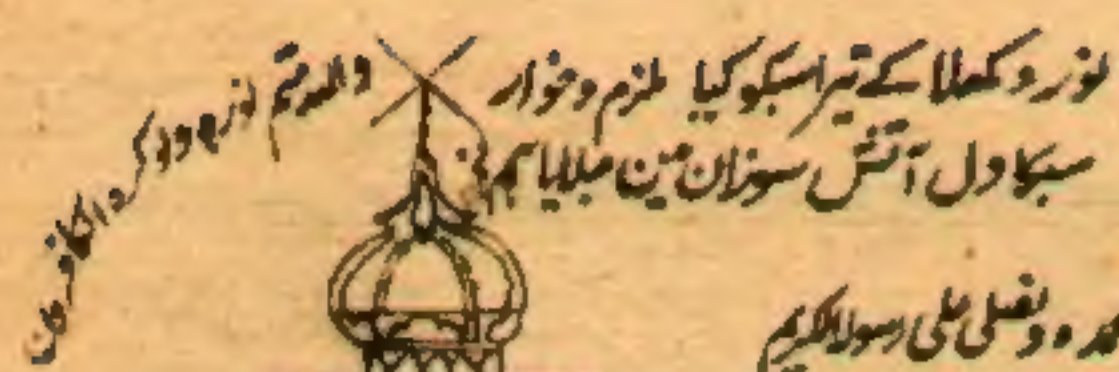 نور دکھلا کے تیرا سبکو کیا ملزم و خوار
سبکا دل آتش سوزان مین جلایا ہمنے
واللہ متم نورہ ولو کرہ الکافرون
ونصلی علی رسولہ الکریم